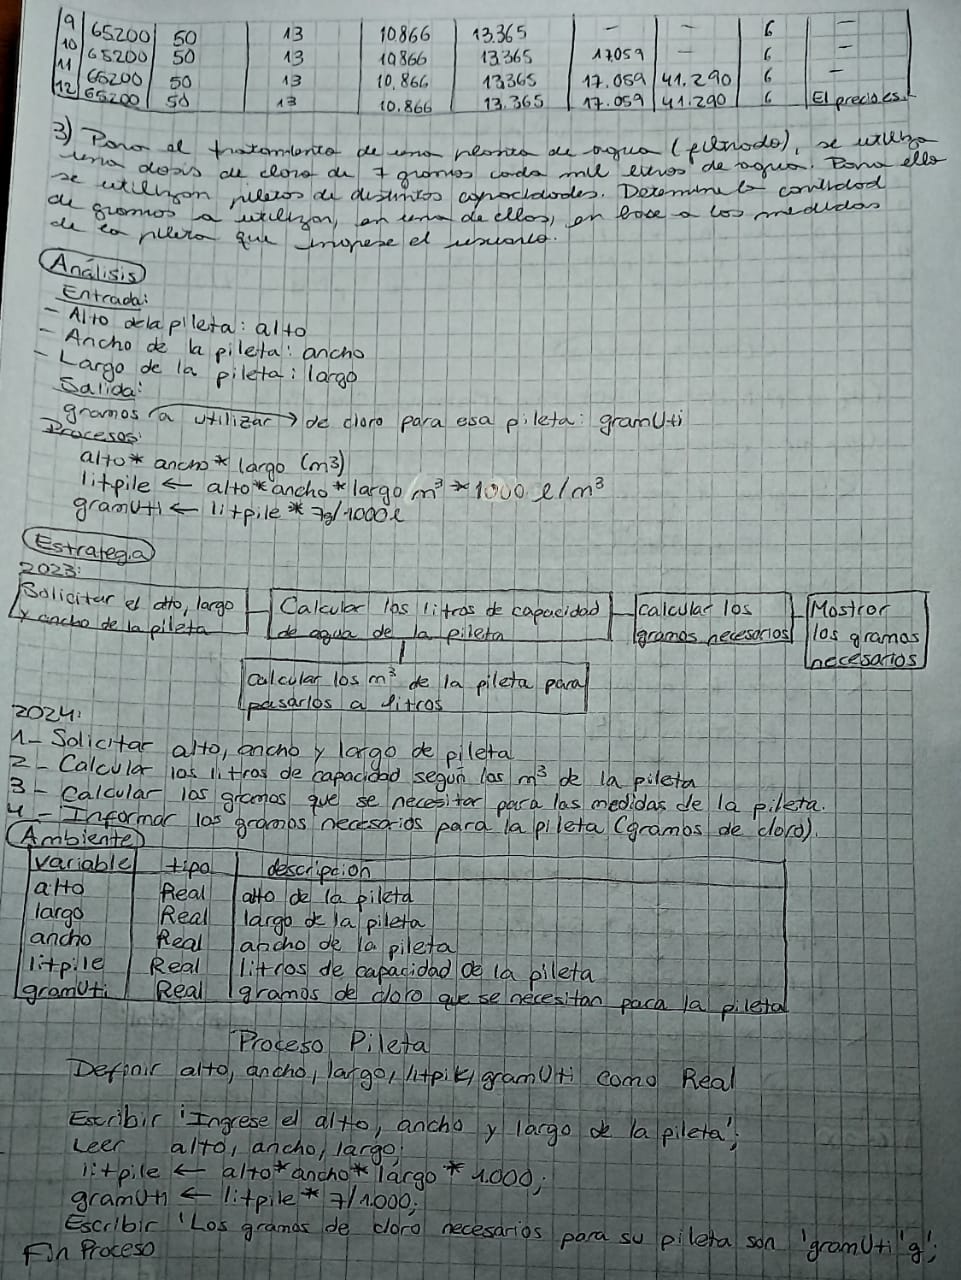 9 65200 50 13 10866 13.365 - - 6 -
10 65200 50 13 10866 13365 17059 - 6 -
11 65200 50 13 10.866 13365 17.059 41.290 6 -
12 65200 50 13 10.866 13.365 17.059 41.290 6 El precio es..
3) Para el tratamiento de una planta de agua (pilnodo), se utiliza
una dosis de cloro de 7 gramos cada mil litros de agua. Para ello
se utilizan piletas de distintas capacidades. Determine la cantidad
de gramos a utilizar, en una de ellas, en base a las medidas
de la pileta que ingrese el usuario.
Análisis
Entrada:
- Alto de la pileta: alto
- Ancho de la pileta: ancho
- Largo de la pileta: largo
Salida:
gramos a utilizar → de cloro para esa pileta: gramUti
Procesos:
alto * ancho * largo (m3)
litpile ← alto * ancho * largo m³ * 1000 l/m³
gramUti ← litpile * 7g/1000l
Estrategia
2023:
Solicitar el alto, largo y ancho de la pileta
Calcular los litros de capacidad de agua de la pileta
calcular los gramos necesarios
Mostrar los gramos necesarios
calcular los m³ de la pileta para pasarlos a litros
2024:
1- Solicitar alto, ancho y largo de pileta
2- Calcular los litros de capacidad según los m³ de la pileta
3- Calcular los gramos que se necesitar para las medidas de la pileta.
4- Informar los gramos necesarios para la pileta (gramos de cloro).
Ambiente
variable tipo descripcion
alto Real alto de la pileta
largo Real largo de la pileta
ancho Real ancho de la pileta
litpile Real litros de capacidad de la pileta
gramUti Real gramos de cloro que se necesitan para la pileta
Proceso Pileta
Definir alto, ancho, largo, litpile, gramUti como Real
Escribir 'Ingrese el alto, ancho y largo de la pileta';
Leer alto, ancho, largo;
litpile ← alto * ancho * largo * 1.000;
gramUti ← litpile * 7/1.000;
Escribir 'Los gramos de cloro necesarios para su pileta son 'gramUti'g';
Fin Proceso